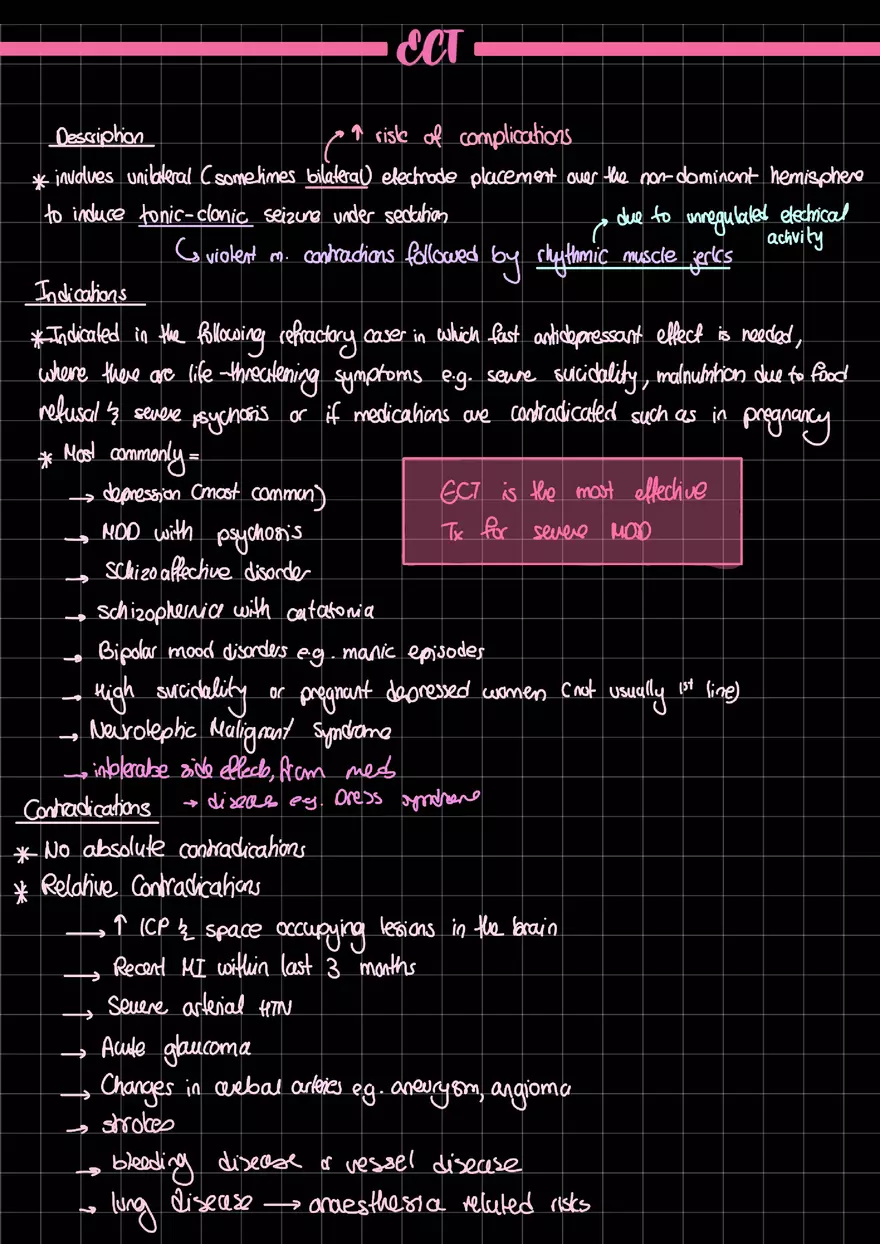 ECT
Description
↑ risk of complications
* involves unilateral (sometimes bilateral) electrode placement over the non-dominant hemisphere
to induce tonic-clonic seizure under sedation
due to unregulated electrical
activity
↳ violent m. contractions followed by rhythmic muscle jerks
Indications
* Indicated in the following refractory cases in which fast antidepressant effect is needed,
where there are life-threatening symptoms e.g. severe suicidality, malnutrition due to food
refusal & severe psychosis or if medications are contradicated such as in pregnancy
* Most commonly =
→ depression (most common)
ECT is the most effective
Tx for severe MDD
→ MDD with psychosis
→ Schizoaffective disorder
→ schizophernia with catatonia
→ Bipolar mood disorders e.g. manic episodes
→ High suicidality or pregnant depressed women (not usually 1st line)
→ Neuroleptic Malignant Syndrome
→ intolerable side effects, from meds
→ disease eg. Dress syndrome
Contradications
* No absolute contradications
* Relative Contradications
→ ↑ ICP & space occupying lesions in the brain
→ Recent MI within last 3 months
→ Severe arterial HTN
→ Acute glaucoma
→ Changes in cerebal arteries e.g. aneurysm, angioma
→ strokes
→ bleeding disease or vessel disease
→ lung disease → anaesthesia related risks